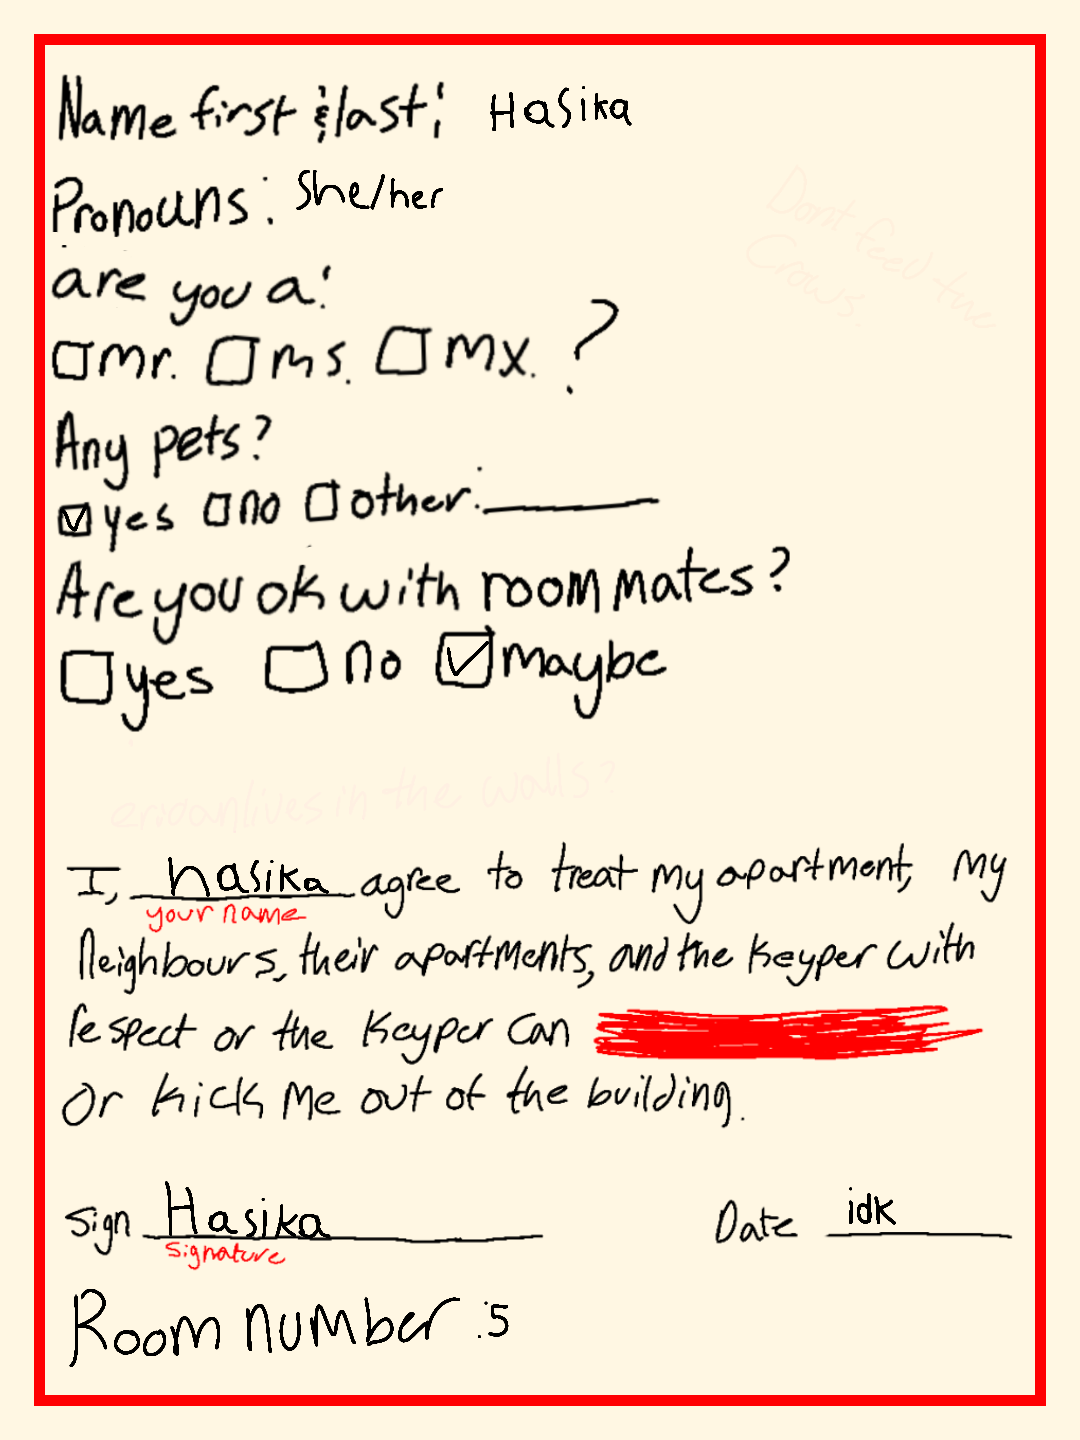 Name first & last: Hasika
Pronouns: She/her
Dont feed the
Crows.
are you a:
mr. ms. mx. ?
Any pets?
yes no other:
Are you ok with roommates?
yes no maybe
lives in the walls?
I, hasika agree to treat my apartment, my
your name
Neighbours, their apartments, and the Keyper with
respect or the Keyper can
or kick me out of the building.
Sign Hasika Date idk
signature
Room number :5